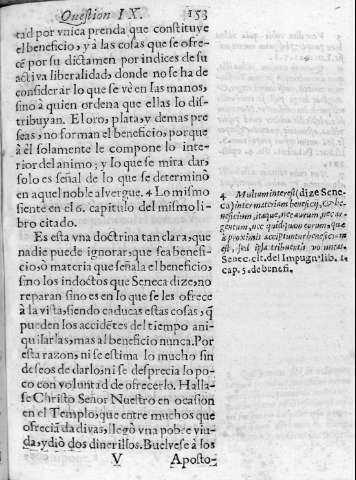 Question IX. 153
tad por vnica prenda que constituye
el beneficio, y à las cosas que se ofre-
cē por su dictamen por indices de su
activa liberalidad, donde no se ha de
considerar lo que se vè en las manos,
sino à quien ordena que ellas lo dis-
tribuyan. El oro, plata, y demas pre
seas, no forman el beneficio, porque
à èl solamente le compone lo inte-
rior del animo; y lo que se mira dar,
solo es señal de lo que se determinò
en aquel noble alvergue. 4 Lo mismo
siente en el 6. capitulo del mismo li-
bro citado.
Es esta vna doctrina tan clara, que
nadie puede ignorar, que sea benefi-
cio, ò materia que señala el beneficio,
sino los indoctos que Seneca dize, no
reparan sino es en lo que se les ofrece
à la vista, siendo caducas estas cosas, q̃
pueden los accidētes del tiempo ani-
quilarlas, mas al beneficio nunca. Por
esta razon, ni se estima lo mucho sin
deseos de darlo, ni se desprecia lo po-
co con voluntad de ofrecerlo. Halla-
se Christo Señor Nuestro en ocasion
en el Templo, que entre muchos que
ofreciā da divas, llegò vna pobre viu-
da, y diò dos dinerillos. Buelvese à los
V Aposto-
4 Multum interest (dize Sene-
ca) inter materiam beneficij, & be-
neficium, itaque, nec aurum, nec ar-
gentum, nec quidquam eorum, quæ
à proximis accipiuntur beneficium
est, sed ipsa tribuentis voluntas.
Senec. cit. del Impugn. lib. 1.
cap. 5. de benefi.